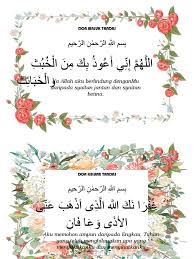 DOA MASUK TANDAS
بِسْمِ اللهِ الرَّحْمٰنِ الرَّحِيْمِ
اللَّهُمَّ إِنِّي أَعُوذُ بِكَ مِنَ الْخُبُثِ
وَالْخَبَائِثِ
Ya Allah aku berlindung denganMu
daripada syaitan jantan dan syaitan
betina.
DOA KELUAR TANDAS
بِسْمِ اللهِ الرَّحْمٰنِ الرَّحِيْمِ
غُفْرَا نَكَ اللهِ الَّذِي أَذْهَبَ عَنِّي
الأَذَى وَعَا فَانِ
Aku memohon ampun daripada Engkau, Tuhan
yang telah menghilangkan apa yang